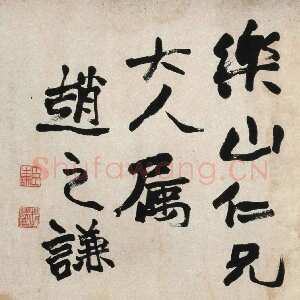 樂山仁兄
大人属
趙之謙
ShufaWang.CN